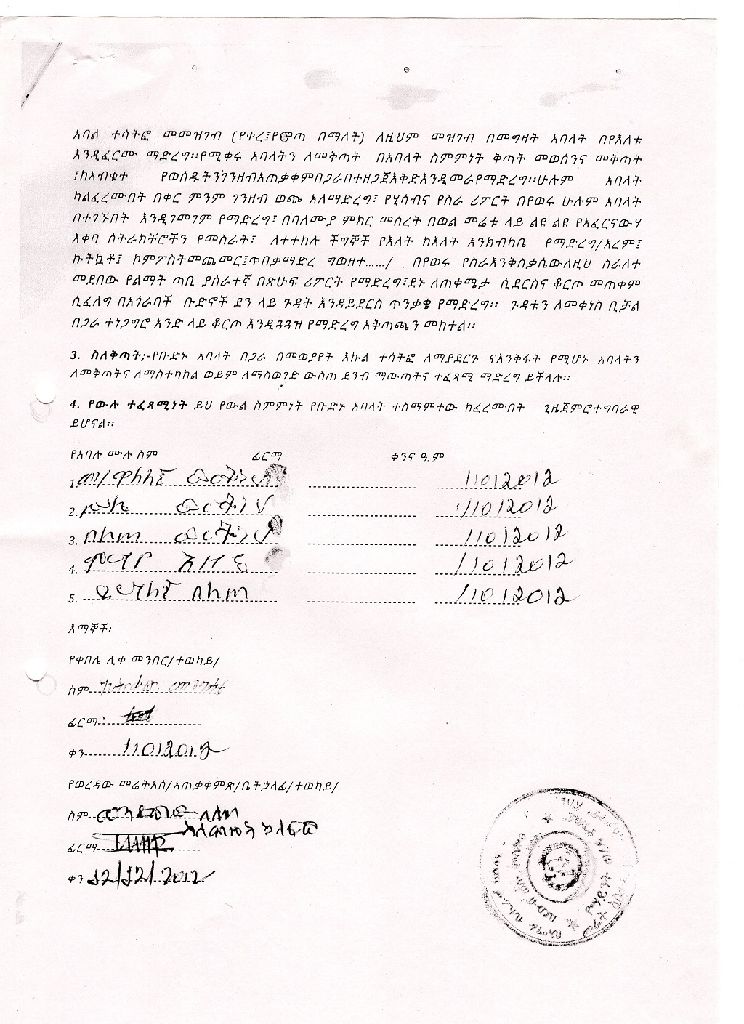 አባል ተሳትፎ መመዝገብ (የቀረ፣የመጣ በማለት) ለዚህም መዝገብ በመግዛት አባላት በየእለቱ
እንዲፈርሙ ማድረግ።የሚቀሩ አባላትን ለመቅጣት በአባላት ስምምነት ቅጣት መወሰንና መቅጣት
የወሰዱትንገንዘብአጠቃቀምበጋራበተዘጋጀእቅድእንዲመራየማድረግ።ሁሉም አባላት
ካልፈረሙበት በቀር ምንም ገንዘብ ወጭ አለማድረግ፣ የሂሳብና የስራ ሪፖርት በየወሩ ሁሉም አባላት
በተገኙበት እንዲገመገም የማድረግ፣ በባለሙያ ምክር መሰረት በወል መሬቱ ላይ ልዩ ልዩ የአፈርናውሃ
እቀባ ስትራክቸሮችን የመስራት፣ ለተተከሉ ችግኞች የእለት ከእለት እንክብካቤ የማድረግ/አረም፣
ኩትኳቶ፣ ኮምፖስትመጨመር፣ጥበቃማድረግ ወዘተ...../ በየወሩ የስራእንቅስቃሴውለዚህ ስራለተ
መደበው የልማት ጣቢ ያሰራተኛ በጽሁፍ ሪፖርት የማድረግ፣ደኑ ለጠቀሜታ ሲደርስና ቆርጦ መጠቀም
ሲፈለግ በአገራባች ቡድኖች ደን ላይ ጉዳት እንዳይደርስ ጥንቃቄ የማድረግ። ጉዳቱን ለመቀነስ ቢቻል
በጋራ ተነጋግሮ አንድ ላይ ቆርጦ እንዲጓጓዝ የማድረግ አቅጣጫን መከተል።
3. ስለቅጣት፡-የቡድኑ አባላት በጋራ በመወያየት እኩል ተሳትፎ ለማያደርጉ ናእንቅፋት የሚሆኑ አባላትን
ለመቅጣትና ለማስተካከል ወይም ለማስወገድ ውስጠ ደንብ ማውጣትና ተፈጻሚ ማድረግ ይችላሉ።
4. የውሉ ተፈጻሚነት ይህ የውል ስምምነት የቡድኑ አባላት ተስማምተው ከፈረሙበት ጊዜጀምሮተግባራዊ
ይሆናል።
የአባሉ ሙሉ ስም ፊርማ ቀንና ዓ.ም
1. 1/10/2012
2. 1/10/2012
3. በለጠ 1/10/2012
4. 1/10/2012
5. በለጠ 1/10/2012
እማኞች፡
የቀበሌ ሊቀ መንበር/ተወካይ/
ስም
ፊርማ፡
ቀን 1/10/2012
የወረዳው መሬትአስ/አጠቃቀምጽ/ቤትኃላፊ/ተወካይ/
ስም
ፊርማ
ቀን 12/12/2012